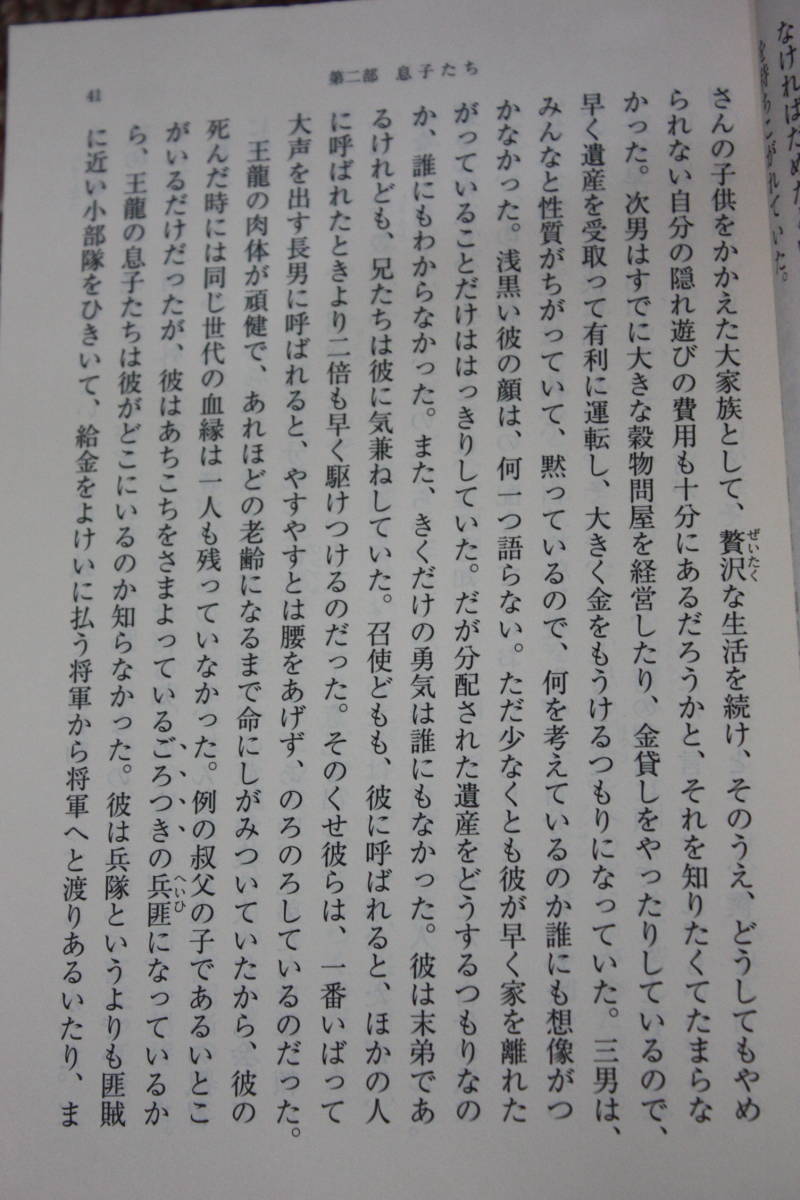 第二部 息子たち
41
さんの子供をかかえた大家族として、贅沢な生活を続け、そのうえ、どうしてもやめ
ぜいたく
られない自分の隠れ遊びの費用も十分にあるだろうかと、それを知りたくてたまらな
かった。次男はすでに大きな穀物問屋を経営したり、金貸しをやったりしているので、
早く遺産を受取って有利に運転し、大きく金をもうけるつもりになっていた。三男は、
みんなと性質がちがっていて、黙っているので、何を考えているのか誰にも想像がつ
かなかった。浅黒い彼の顔は、何一つ語らない。ただ少なくとも彼が早く家を離れた
がっていることだけははっきりしていた。だが分配された遺産をどうするつもりなの
か、誰にもわからなかった。また、きくだけの勇気は誰にもなかった。彼は末弟であ
るけれども、兄たちは彼に気兼ねしていた。召使どもも、彼に呼ばれると、ほかの人
に呼ばれたときより二倍も早く駆けつけるのだった。そのくせ彼らは、一番いばって
大声を出す長男に呼ばれると、やすやすとは腰をあげず、のろのろしているのだった。
王龍の肉体が頑健で、あれほどの老齢になるまで命にしがみついていたから、彼の
死んだ時には同じ世代の血縁は一人も残っていなかった。例の叔父の子であるいとこ
がいるだけだったが、彼はあちこちをさまよっているごろつきの兵匪になっているか
へいひ
ら、王龍の息子たちは彼がどこにいるのか知らなかった。彼は兵隊というよりも匪賊
に近い小部隊をひきいて、給金をよけいに払う将軍から将軍へと渡りあるいたり、ま